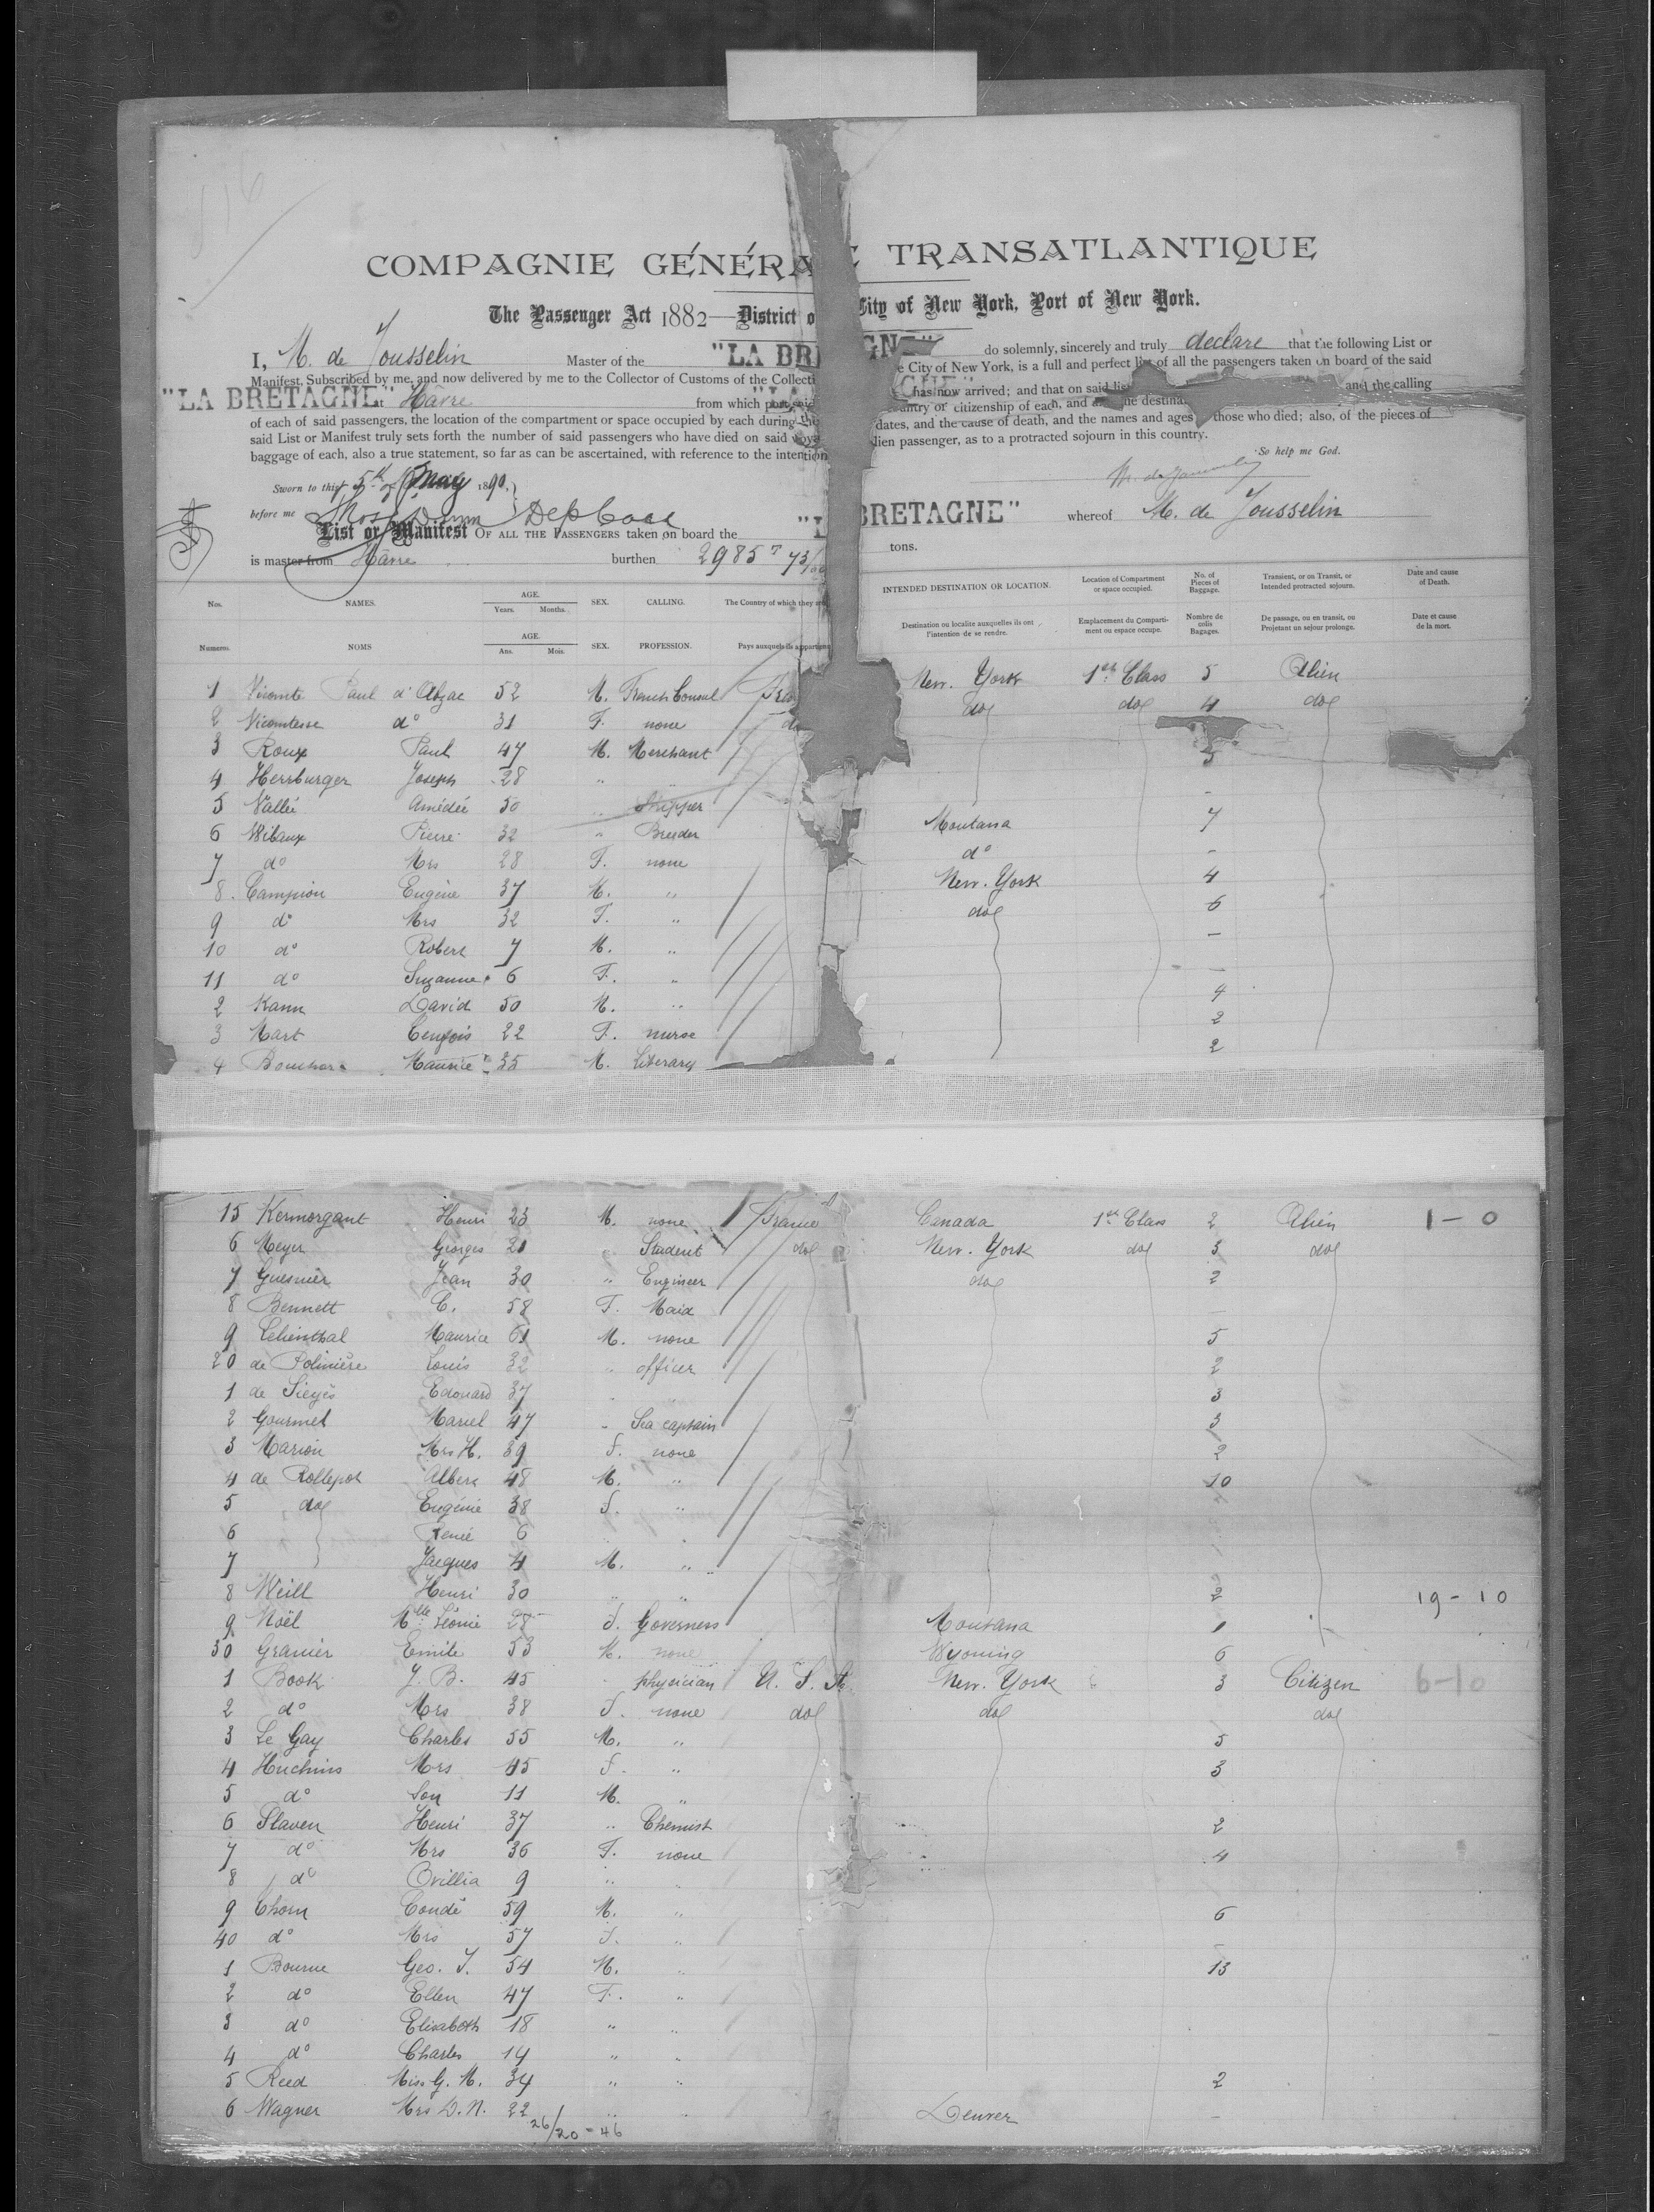 COMPAGNIE GÉNÉRA E TRANSATLANTIQUE
The Passenger Act 1882—District o City of New York, Port of New York.
I, M. de Jousselin Master of the "LA BR GNE" do solemnly, sincerely and truly declare that the following List or
Manifest, Subscribed by me, and now delivered by me to the Collector of Customs of the Collecti e City of New York, is a full and perfect list of all the passengers taken on board of the said
"LA BRETAGNE" at Hâvre from which port said "LA GNE" has now arrived; and that on said list and the calling
of each of said passengers, the location of the compartment or space occupied by each during the country of citizenship of each, and the destina
said List or Manifest truly sets forth the number of said passengers who have died on said voya dates, and the cause of death, and the names and ages those who died; also, of the pieces of
baggage of each, also a true statement, so far as can be ascertained, with reference to the intention lien passenger, as to a protracted sojourn in this country.
So help me God.
Sworn to this 5th of May 1890,
before me
List or Manifest OF ALL THE PASSENGERS taken on board the "L BRETAGNE" whereof M. de Jousselin
is master from Hâvre burthen 2985 T 73/ tons.
Nos. NAMES. AGE. Years. Months. SEX. CALLING. The Country of which they INTENDED DESTINATION OR LOCATION. Location of Compartment or space occupied. No. of Pieces of Baggage. Transient, or on Transit, or Intended protracted sojourn. Date and cause of Death.
Numeros. NOMS AGE. Ans. Mois. SEX. PROFESSION. Pays auxquels ils appartien Destination ou localité auxquelles ils ont l'intention de se rendre. Emplacement du Compartiment ou espace occupe. Nombre de colis Bagages. De passage, ou en transit, ou Projetant un sejour prolonge. Date et cause de la mort.
1 Vicomte Paul d'Abzac 52 M. French Consul Fra New. York 1st Class 5 Alien
2 Vicomtesse do 31 F. none do do do 4 do
3 Roux Paul 47 M. Merchant 5
4 Herrburger Joseph 28 " " -
5 Vallée Amédée 30 " Shipper
6 Wibaux Pierre 32 " Breeder Montana 7
7 do Mrs 28 F. none do -
8 Campion Eugène 37 M. " New. York 4
9 do Mrs 32 F. " do 6
10 do Robert 7 M. " -
11 do Suzanne 6 F. " -
2 Kann David 50 M. " 4
3 Mart 22 F. nurse 2
4 Maurice 35 M. Literary 2
15 Kermorgant Henri 23 M. none France Canada 1st Class 2 Alien 1-0
6 Meyer Georges 21 " Student do New. York do 3 do
7 Guesnier Jean 30 " Engineer do 2
8 Bennett C. 58 F. Maid -
9 Lilienthal Maurice 61 M. none 5
20 de Polinière Louis 32 " officer 2
1 de Sieyès Edouard 37 " " 3
2 Gourmel Marcel 47 " Sea captain 3
3 Marion Mrs H. 39 F. none 2
4 de Rollepot Albert 48 M. " 10
5 do Eugénie 38 F. "
6 Renée 6 " "
7 Jacques 4 M. "
8 Weill Henri 30 " " 2 19-10
9 Noël Mlle Léonie 28 F. Governess Montana 1
30 Granier Emile 53 M. none Wyoming 6
1 Book J. B. 45 " physician U. S. A. New. York 3 Citizen 6-10
2 do Mrs 38 F. none do do do
3 Le Gay Charles 55 M. " 5
4 Huchins Mrs 45 F. " 3
5 do Son 11 M. "
6 Slaven Henri 37 " Chemist 2
7 do Mrs 36 F. none 4
8 do Ovillia 9 " "
9 Chorn Condé 59 M. " 6
40 do Mrs 57 F. " -
1 Bourne Geo. J. 54 M. " 13
2 do Ellen 47 F. "
3 do Elisabeth 18 " "
4 do Charles 14 " "
5 Reed Miss G. M. 34 " " 2
6 Wagner Mrs D. N. 22 " " Denver -
26/20 = 46